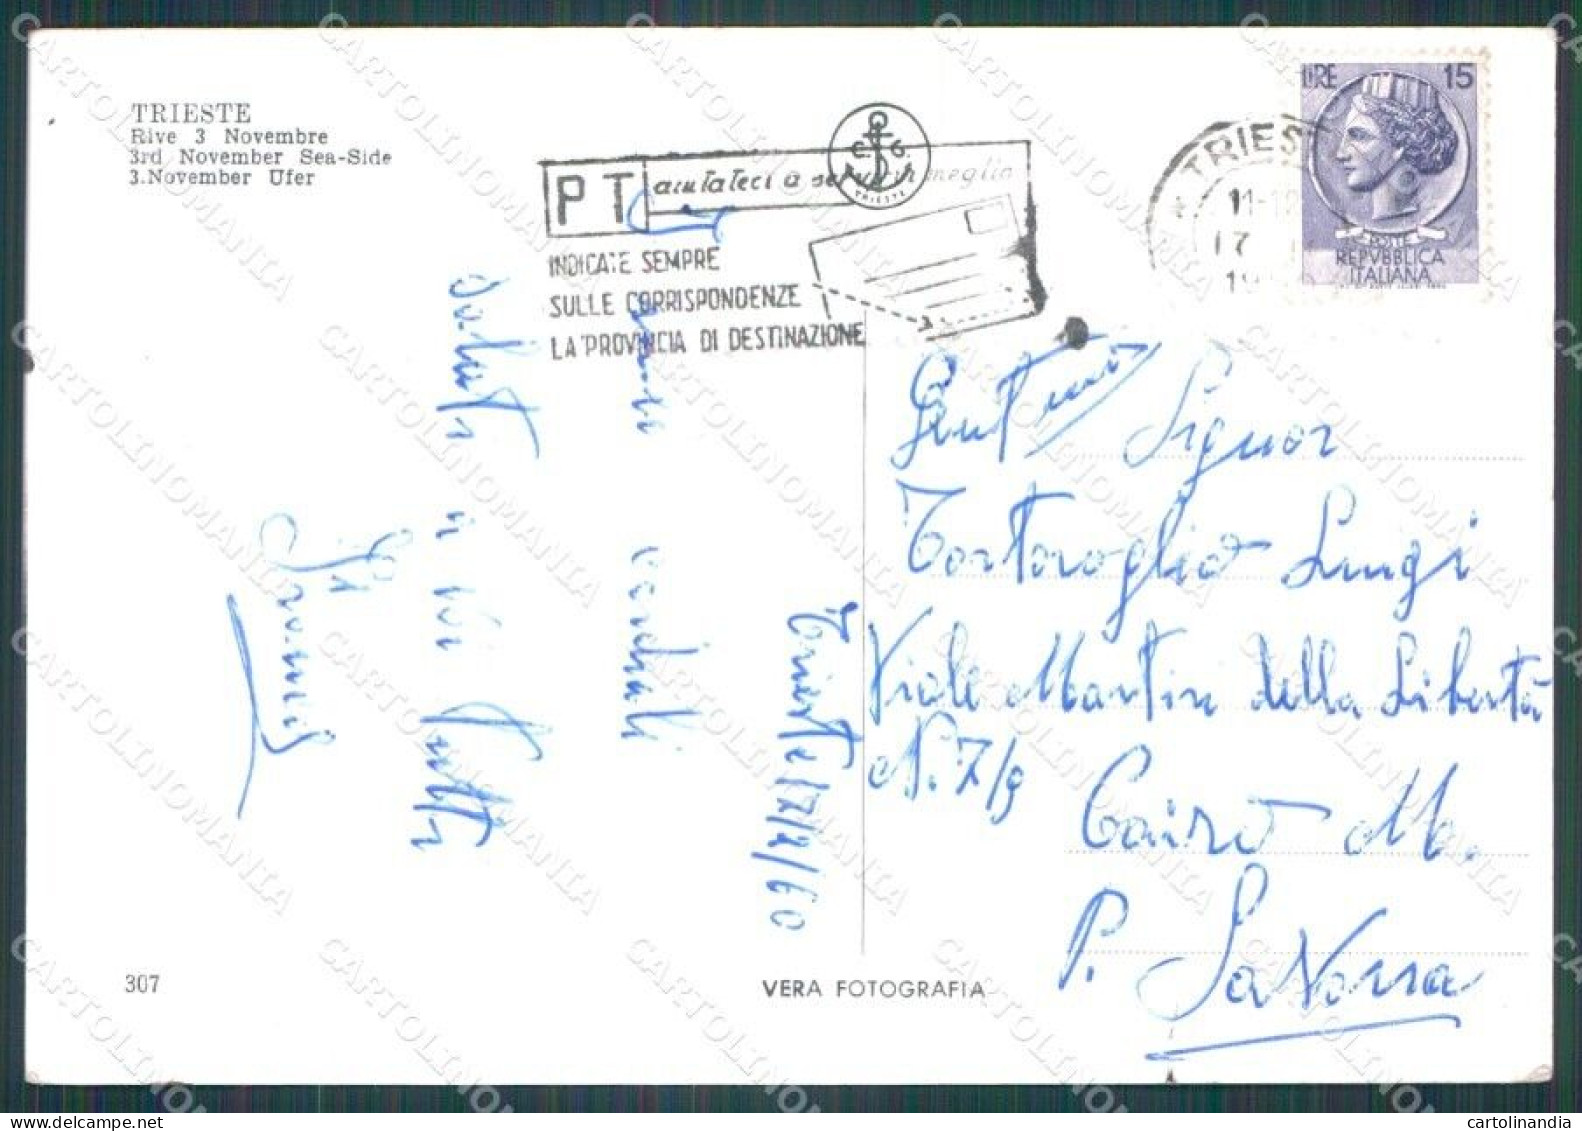 TRIESTE
Rive 3 Novembre
3rd November Sea-Side
3.November Ufer
P T aiutateci a servirvi meglio
C. G.
TRIESTE
INDICATE SEMPRE
SULLE CORRISPONDENZE
LA PROVINCIA DI DESTINAZIONE
TRIES
11-12
17
19
LIRE 15
POSTE
REPVBBLICA
ITALIANA
Trieste 17/2/60
cordiali
saluti a voi tutti
Gent Signor
Tortoroglio Luigi
Viale Martiri della Libertà
N. 7/9
Cairo M.
P. Savona
307
VERA FOTOGRAFIA
CARTOLINOMANIA
cartolinandia